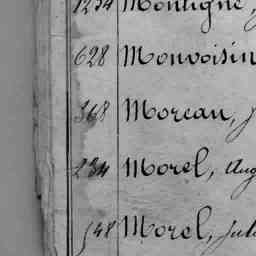 1234 Montigne,
628 Monvoisin
368 Moreau, J
234 Morel, Aug
548 Morel, Jul